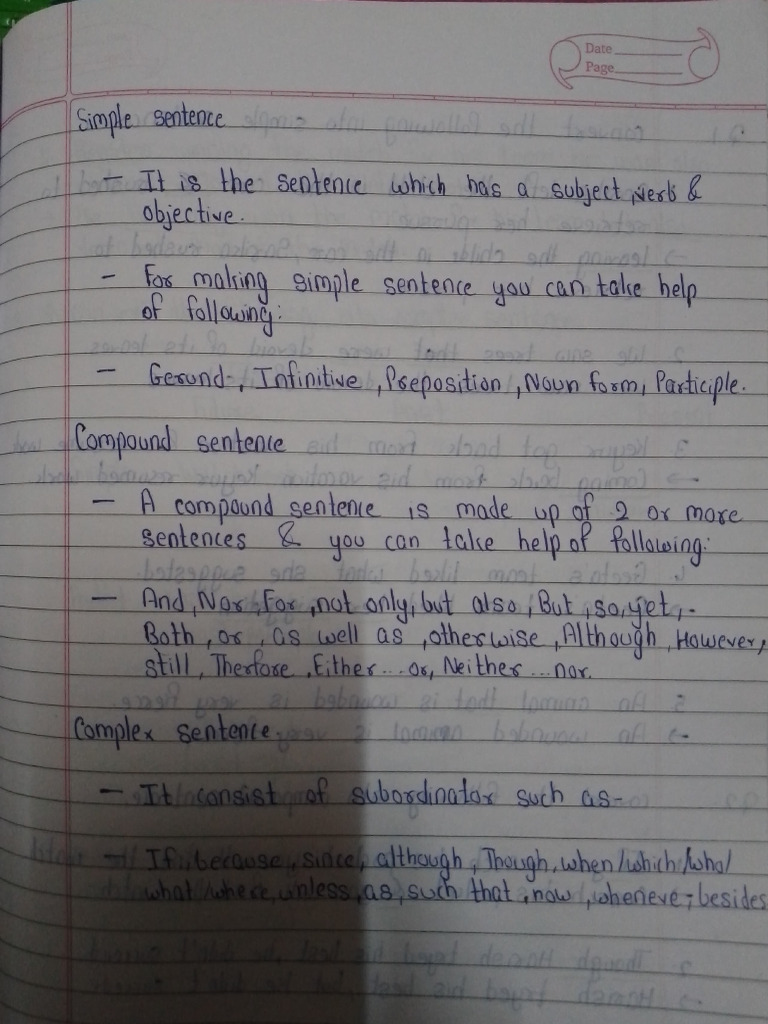 Date
Page
Simple sentence
- It is the sentence which has a subject, verb &
objective.
- For making simple sentence you can take help
of following:
- Gerund, Infinitive, Preposition, Noun form, Participle.
Compound sentence
- A compound sentence is made up of 2 or more
sentences & you can take help of following:
- And, Nor, For, not only, but also, But, so, yet,
Both, or, as well as, otherwise, Although, However,
still, Therfore, Either...or, Neither...nor.
Complex sentence
- It consist of subordinator such as-
- If, because, since, although, Though, when/which/who/
what/where, unless, as, such that, now, wheneve, besides